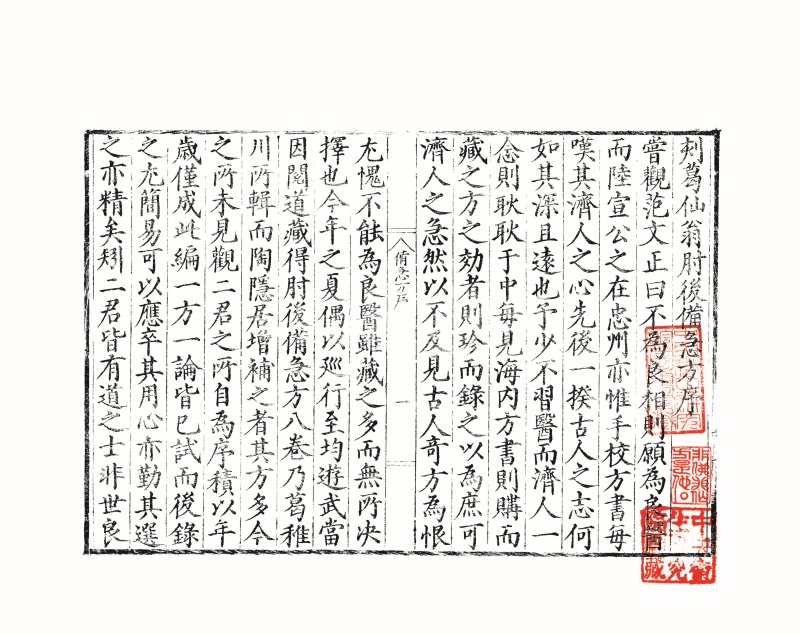 刻葛仙翁肘後備急方序
嘗觀范文正曰不為良相則願為良醫
而陸宣公之在忠州亦惟手校方書每
嘆其濟人之心先後一揆古人之志何
如其深且遠也予少不習醫而濟人一
念則耿耿于中每見海內方書則購而
藏之方之効者則珍而錄之以為庶可
濟人之急然以不及見古人奇方為恨
備急方序
一
尤愧不能為良醫雖藏之多而無所决
擇也今年之夏偶以廵行至均遊武當
因閱道藏得肘後備急方八卷乃葛稚
川所輯而陶隱居增補之者其方多今
之所未見觀二君之所自為序積以年
歲僅成此編一方一論皆已試而後錄
之尤簡易可以應卒其用心亦勤其選
之亦精矣矧二君皆有道之士非世良